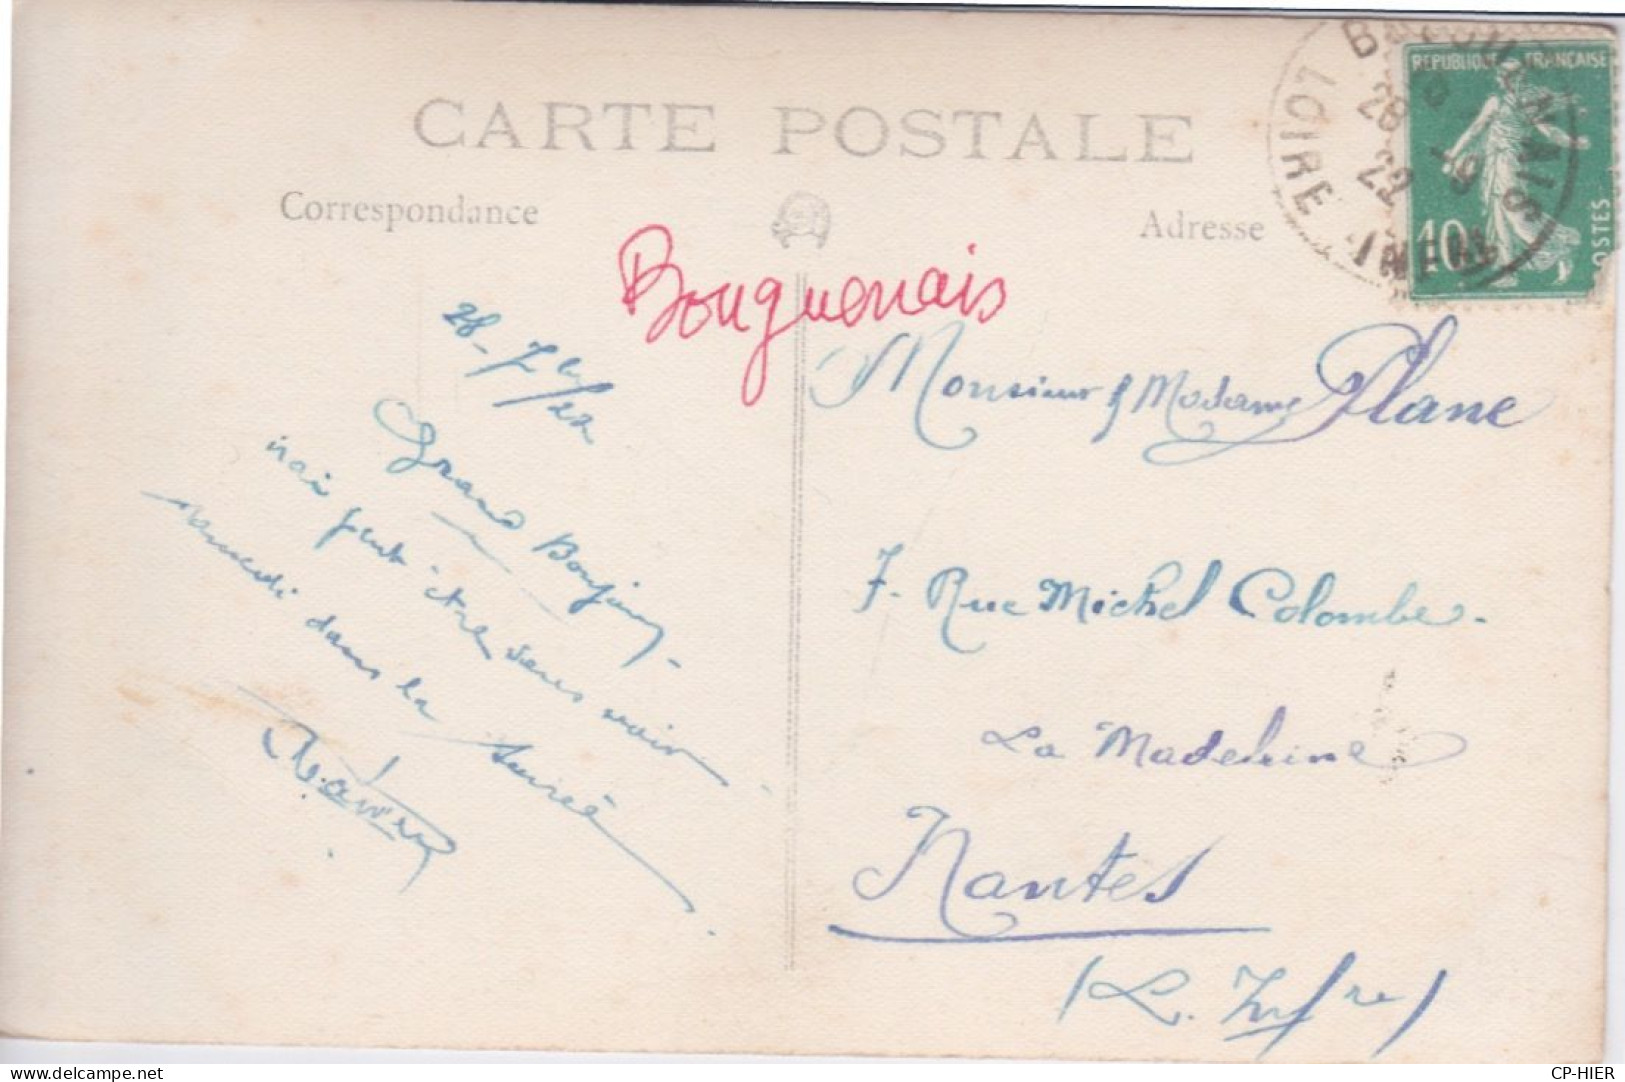 CARTE POSTALE
Correspondance
Adresse
Bouguenais
28 - 7bre/22
Grand Bonjour -
irai peut-être vous voir
samedi dans la soirée
Monsieur & Madame Plane
7. Rue Michel Colombe.
La Madeleine
Nantes
(L. Infre)
REPUBLIQUE FRANÇAISE
10
POSTES
BOUGUENAIS
28
22
LOIRE INFRE
CP-HIER
delcampe.net